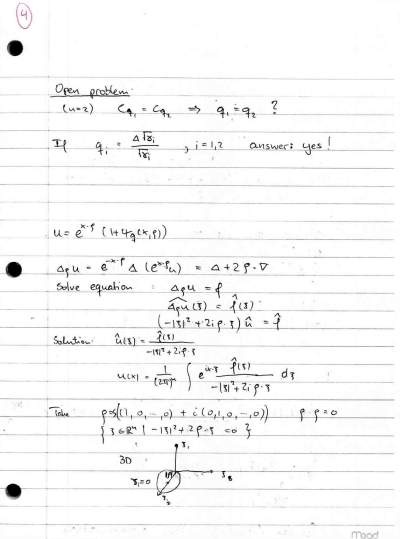 4
Open problem
(n=2) C_{q_1} = C_{q_2} ⇒ q_1 = q_2 ?
If q_i = Δ√γ_i / √γ_i , i=1,2 answer: yes!
u = e^{x·ρ} (1+ψ_q(x,ρ))
Δ_ρ u = e^{-x·ρ} Δ (e^{x·ρ} u) = Δ + 2ρ·∇
Solve equation : Δ_ρ u = f
\widehat{Δ_ρ u}(ξ) = \hat{f}(ξ)
(-|ξ|² + 2iρ·ξ) û = \hat{f}
Solution û(ξ) = \hat{f}(ξ) / -|ξ|²+2iρ·ξ
u(x) = 1/(2π)^n ∫ e^{ix·ξ} \hat{f}(ξ) / -|ξ|²+2iρ·ξ dξ
Take ρ=s((1,0,…,0) + i(0,1,0,…,0)) ρ·ρ=0
{ξ∈ℝ^n | -|ξ|²+2iρ·ξ=0}
ξ_1
3D
ξ_3
ξ_1=0
ξ_2